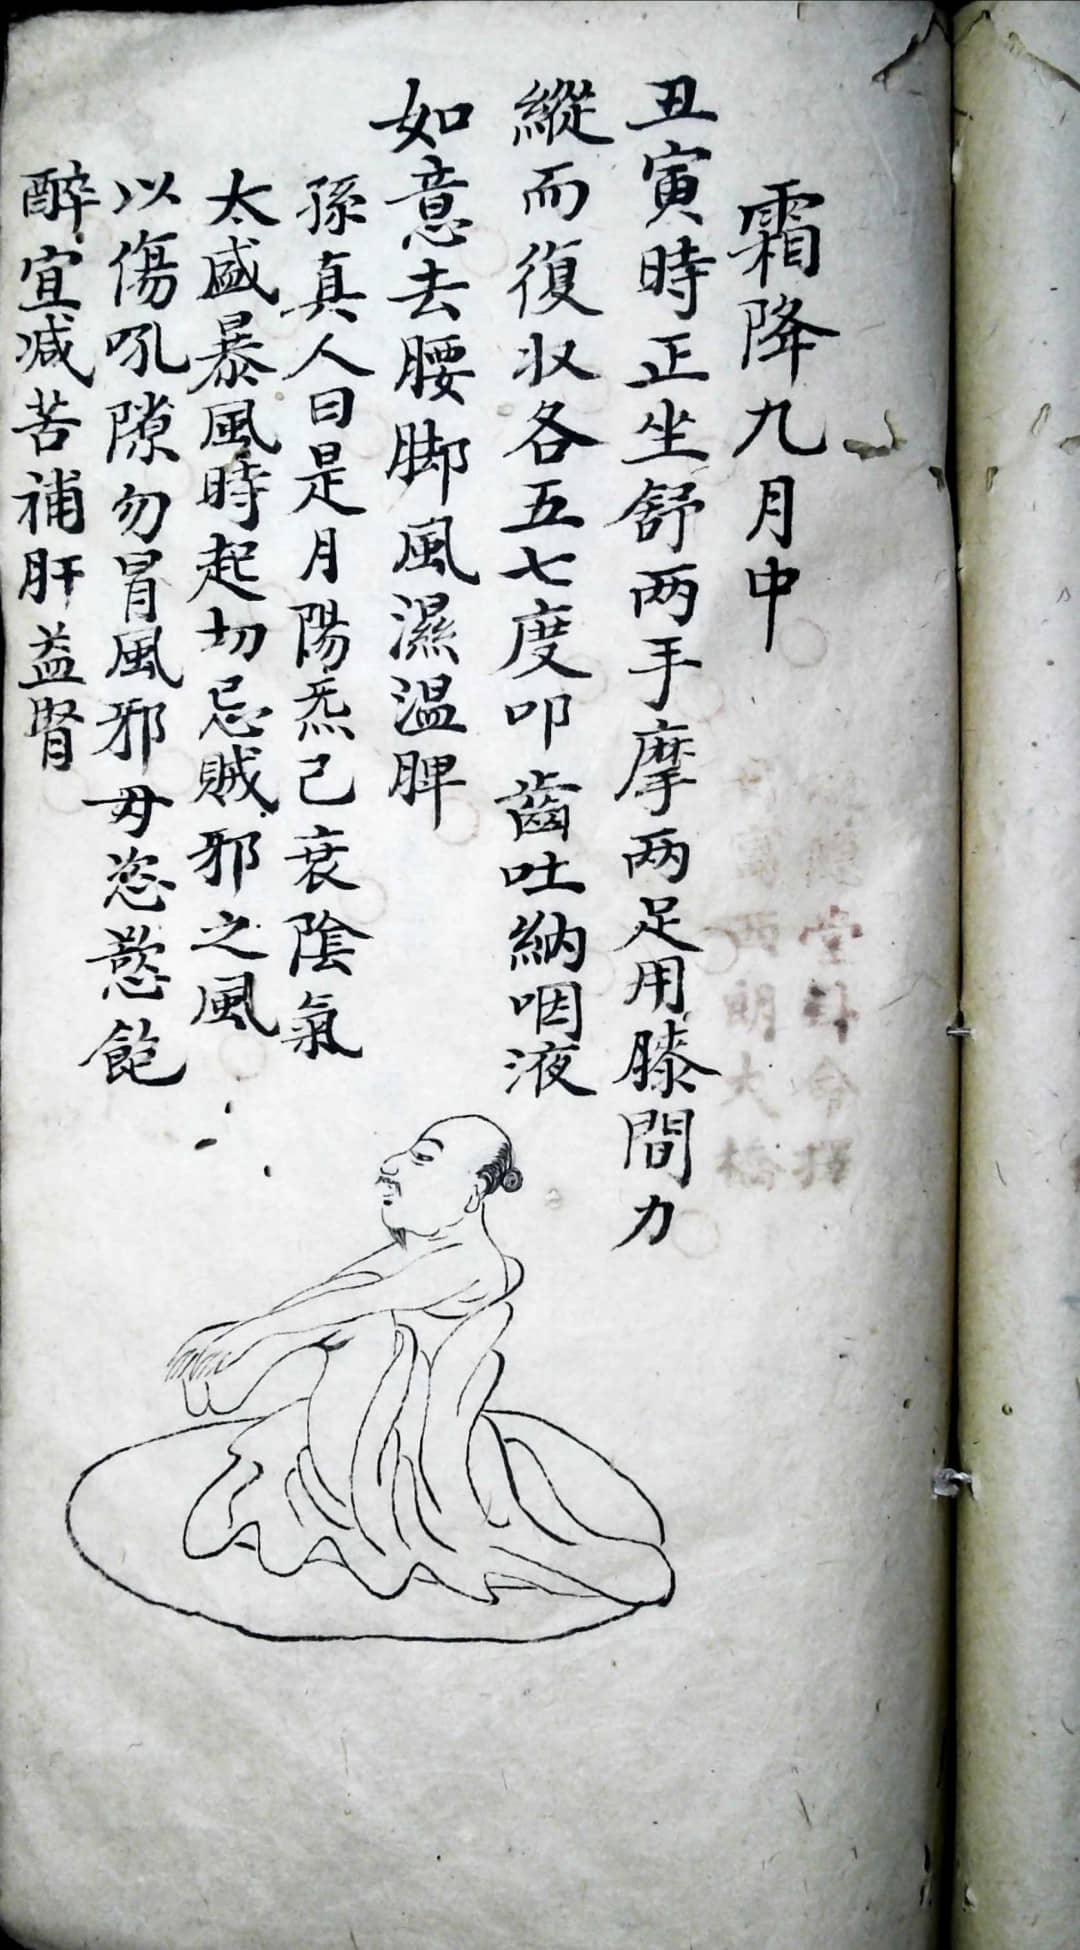 霜降九月中
丑寅時正坐舒两手摩两足用膝間力
縱而復収各五七度叩齒吐納咽液
如意去腰脚風濕温脾
孫真人曰是月陽炁己衰陰氣
太盛暴風時起切忌賊邪之風
以傷吼隙勿冒風邪毋恣慾飽
醉宜減苦補肝益腎